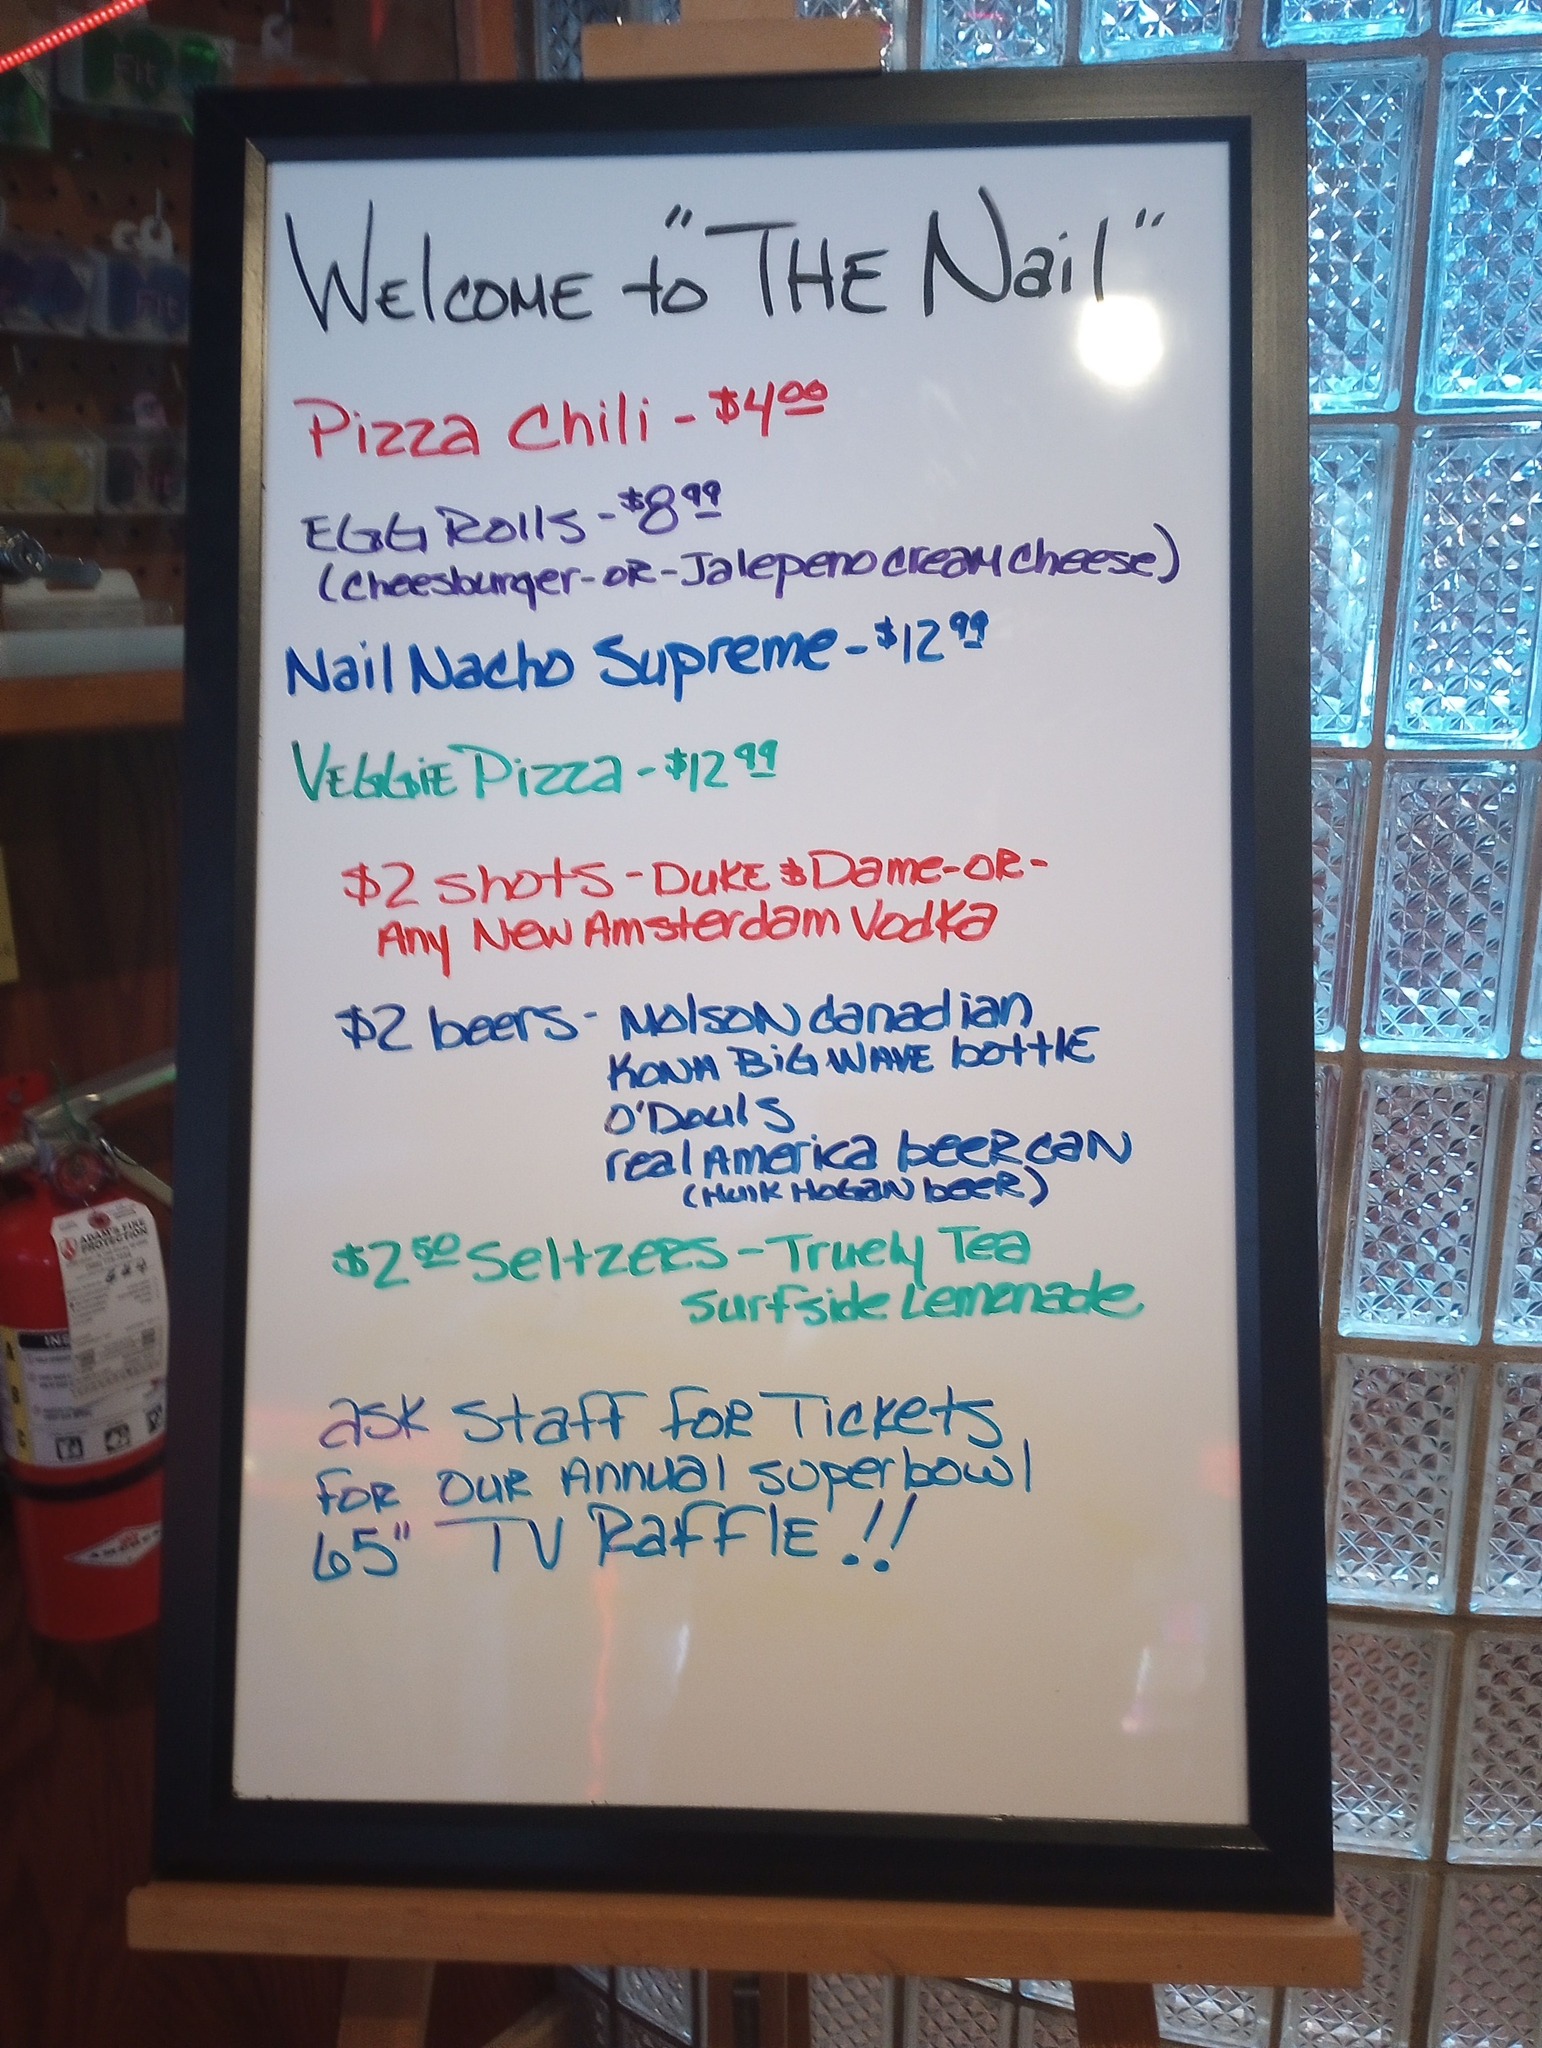 Welcome to "THE Nail"
Pizza Chili - $4.00
EGG Rolls - $8.99
(Cheesburger-OR-Jalepeno cream cheese)
Nail Nacho Supreme - $12.99
VEGGiE Pizza - $12.99
$2 shots - DUKE & Dame-OR-
Any New Amsterdam Vodka
$2 beers - Molson Canadian
KONA BiG WAVE bottlE
O'Douls
real America beer can
(Hulk Hogan beer)
$2.50 Seltzers - Truely Tea
Surfside Lemonade
ask Staff for Tickets
for our Annual superbowl
65" TV Raffle!!
ADAM'S FIRE
PROTECTION
INS
A
B
C
Fit
Fit